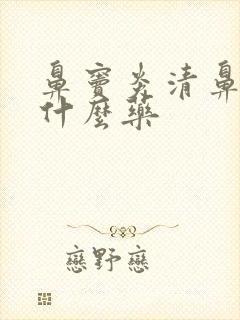 鼻竇炎清鼻
什麼藥
戀野戀